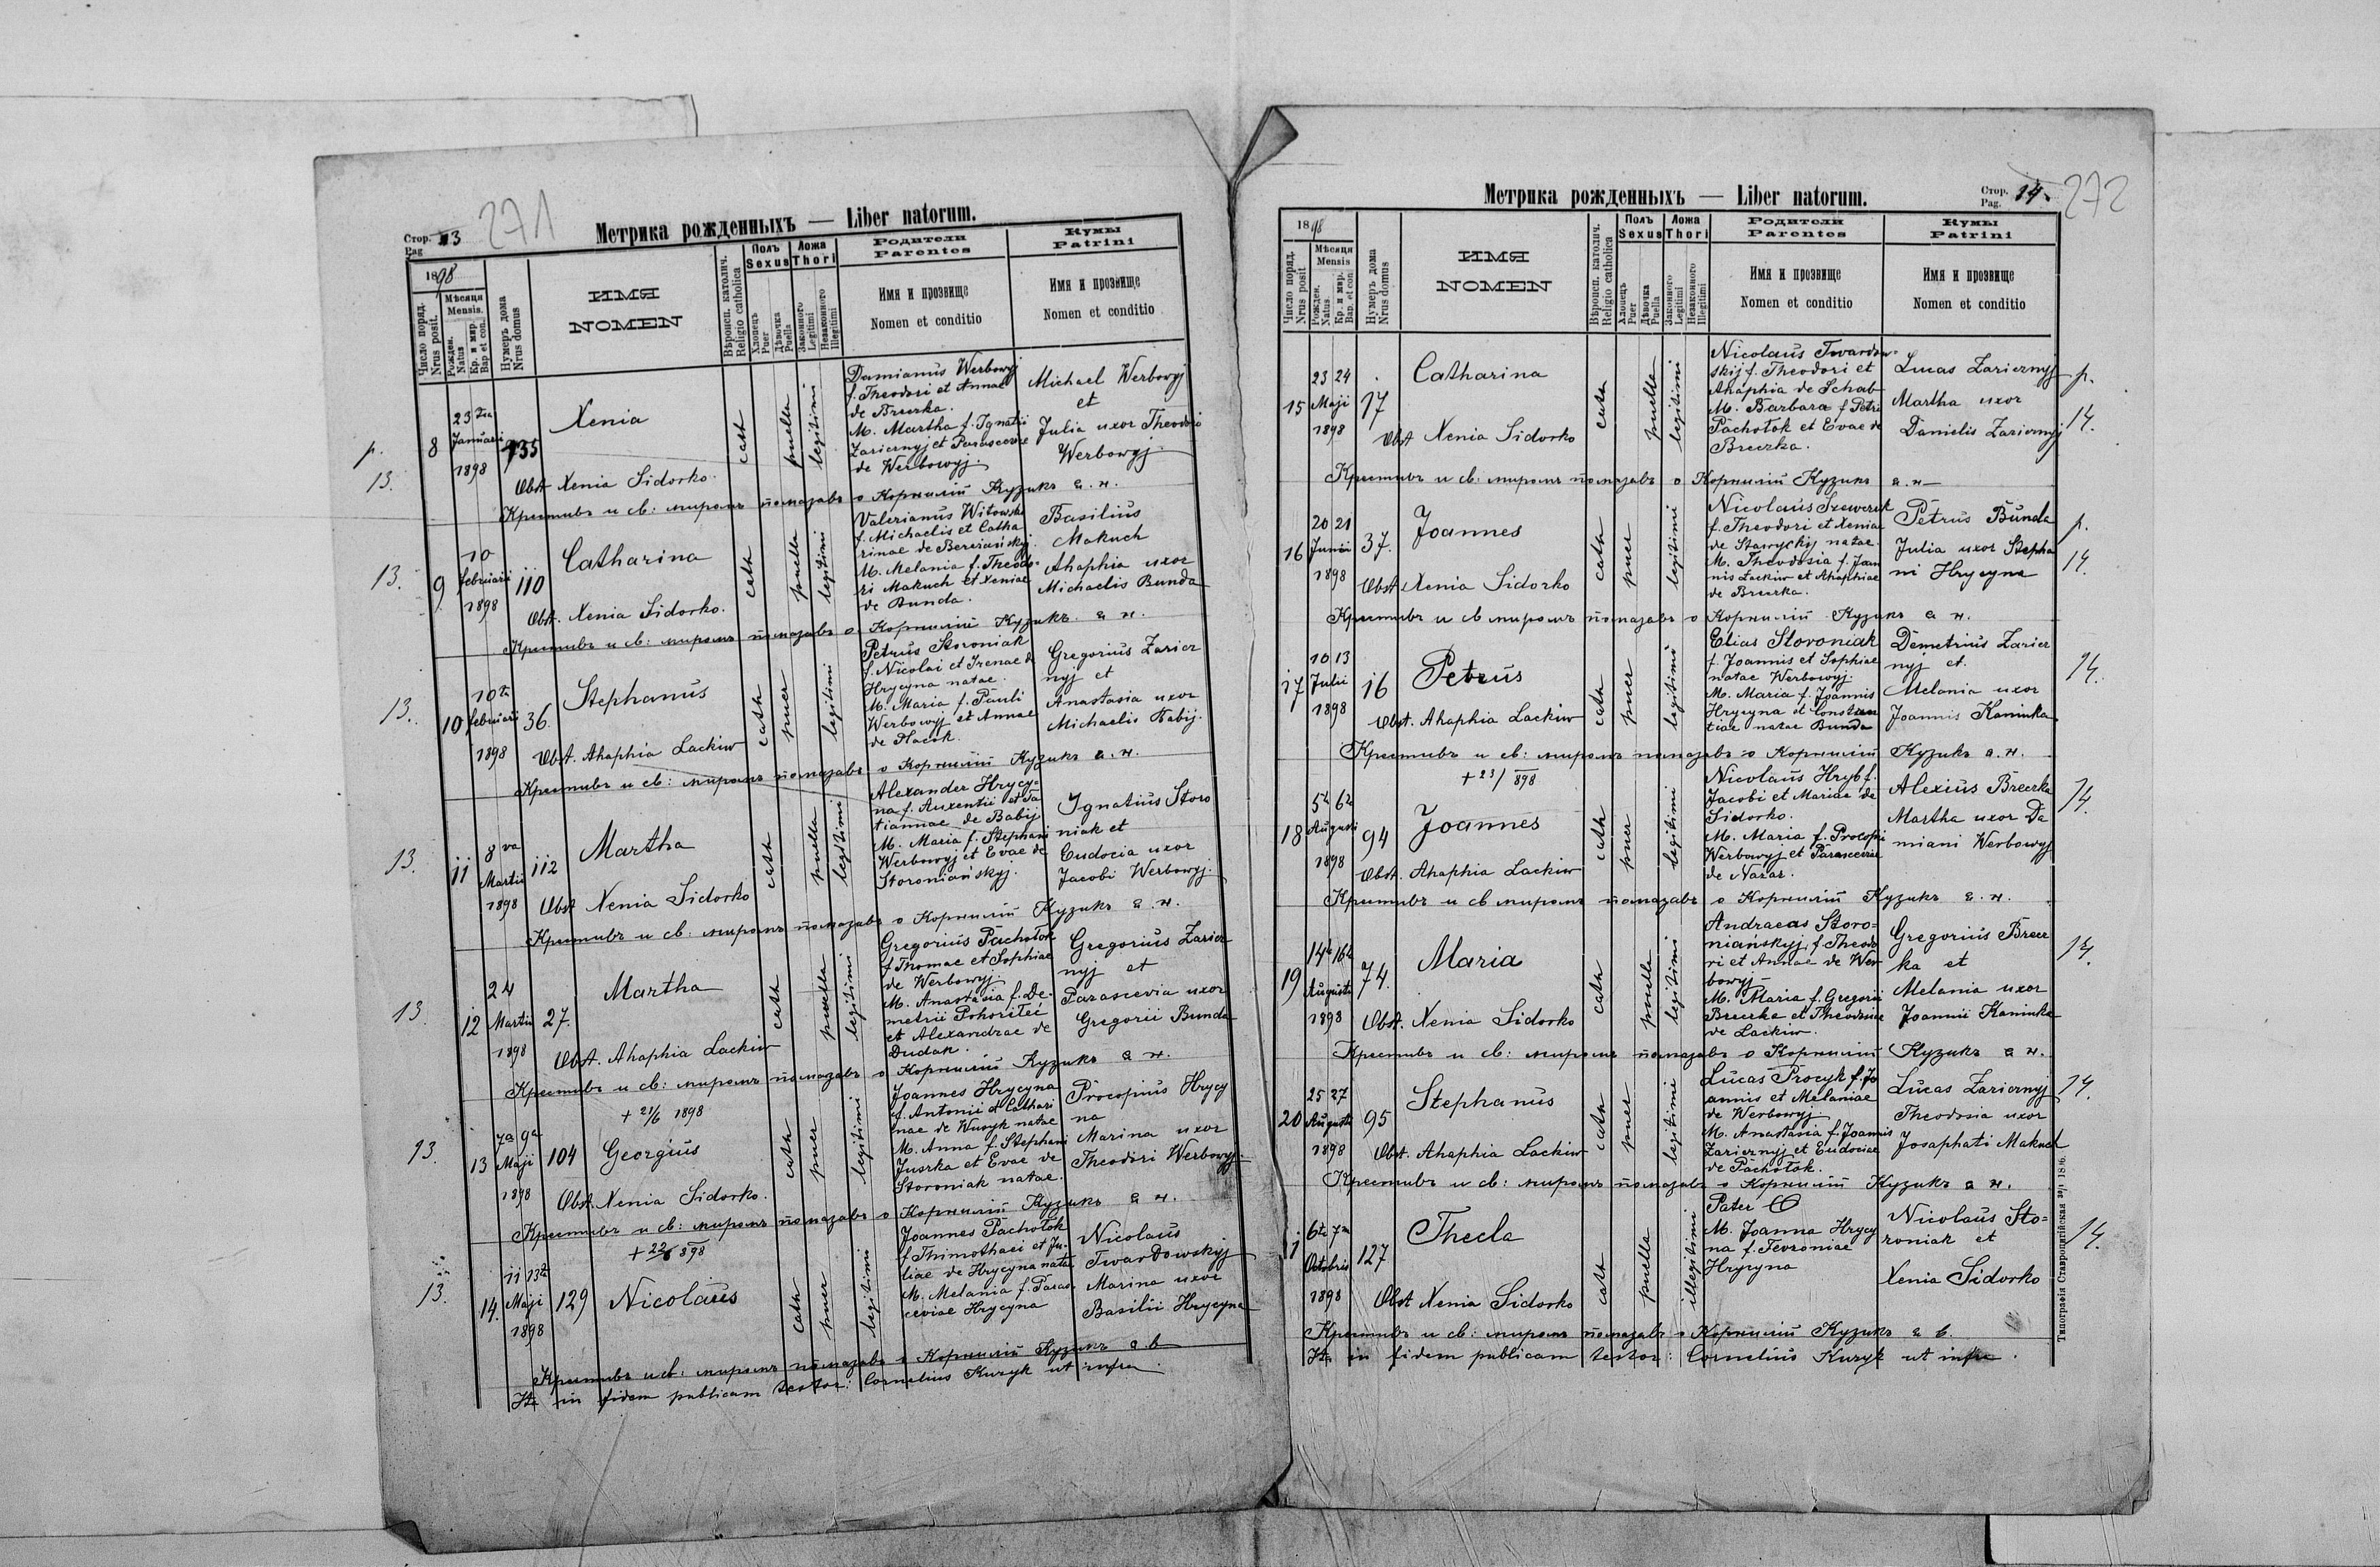 271
Стор. 13
Pag
Метрика рожденныхъ — Liber natorum.
1898
Число поряд.
Nrus posit.
Мѣсяця
Mensis.
Рожден.
Natus
Кр. и мир.
Bap et con.
Нумеръ дома
Nrus domus
ИМЯ
NOMEN
Вѣроисп. католич.
Religio catholica
Полъ
Sexus
Хлопецъ
Puer
Дѣвочка
Puella
Ложа
Thori
Законного
Legitimi
Незаконного
Illegitimi
Родители
Parentes
Имя и прозвище
Nomen et conditio
Кумы
Patrini
Имя и прозвище
Nomen et conditio
p.
13.
8
23
Januarii
1898
135
Xenia
Obst Xenia Sidorko.
cath
puella
legitimi
Damianus Werbowyj
f. Theodori et Annae
de Breczka.
M. Martha f. Ignatii
Zariernyj et Parasceviae
de Werbowyj.
Michael Werbowyj
et
Julia uxor Theodori
Werbowyj.
Крестивъ и св: миромъ помазавъ о Корнилій Кузикъ а. н.
13.
9
10
februarii
1898
110
Catharina
Obst. Xenia Sidorko.
cath
puella
legitimi
Valerianus Witowski
f. Michaelis et Catha
rinae de Bereziańskyj.
M. Melania f. Theodo-
ri Makuch et Xeniae
de Bunda.
Basilius
Makuch
Ahaphia uxor
Michaelis Bunda
Крестивъ и св: миромъ помазавъ о Корнилій Кузикъ а н.
13.
10
10
februarii
1898
36.
Stephanus
Obst. Ahaphia Lackiw
cath
puer
legitimi
Petrus Storoniak
f. Nicolai et Irenae de
Hrycyna natae.
M. Maria f. Pauli
Werbowyj et Annae
de
Gregorius Zarier
nyj et
Anastasia uxor
Michaelis Babij.
Крестивъ и св: миромъ помазавъ о Корнилій Кузикъ а. н.
13.
11
8 va
Martii
1898
112
Martha
Obst Xenia Sidorko
cath
puella
legitimi
Alexander Hrycy-
na f. Auxentii et Ta
tiannae de Babij
M. Maria f. Stephani
Werbowyj et Evae de
Storoniańskyj.
Ignatius Storo
niak et
Eudocia uxor
Jacobi Werbowyj.
Крестивъ и св: миромъ помазавъ о Корнилій Кузикъ а. н.
13.
12
24
Martii
1898
27.
Martha
Obst. Ahaphia Lackiw
cath
puella
legitimi
Gregorius Pachołok
f Thomae et Sophiae
de Werbowyj.
M. Anastasia f. De-
metrii Pohoriłei
et Alexandrae de
Dudak.
Gregorius Zarier
nyj et
Parascevia uxor
Gregorii Bunda
Крестивъ и св: миромъ помазавъ о Корнилій Кузикъ а н.
+ 21/6 1898
13.
13
7a 9a
Maji
1898
104
Georgius
Obst. Xenia Sidorko.
cath
puer
legitimi
Joannes Hrycyna
f. Antonii et Cathari
nae de Wusyk natae
M. Anna f. Stephani
Juzrka et Evae de
Storoniak natae.
Procopius Hrycy
na
Marina uxor
Theodori Werbowyj.
Крестивъ и св: миромъ помазавъ о Корнилій Кузикъ а н.
+ 22/6 898
13.
14.
11 13
Maji
1898
129
Nicolaus
cath
puer
legitimi
Joannes Pachołok
f Thimothaei et Ju-
liae de Hrycyna natae
M. Melania f. Paras
ceviae Hrycyna
Nicolaus
Twardowskyj
Marina uxor
Basilii Hrycyna
Крестивъ и св: миромъ помазавъ о Корнилій Кузикъ а. в
in fidem publicam testor: Cornelius Kuzyk ut infra.
Метрика рожденныхъ — Liber natorum.
Стор. 14.
Pag.
272
1898
Число поряд.
Nrus posit
Мѣсяця
Mensis
Рожден.
Natus.
Кр. и мир.
Bap. et con.
Нумеръ дома
Nrus domus
ИМЯ
NOMEN
Вѣроисп. католич.
Religio catholica
Полъ
Sexus
Хлопецъ
Puer
Дѣвочка
Puella
Ложа
Thori
Законного
Legitimi
Незаконного
Illegitimi
Родители
Parentes
Имя и прозвище
Nomen et conditio
Кумы
Patrini
Имя и прозвище
Nomen et conditio
15
23 24
Maji
1898
17
Catharina
Obst Xenia Sidorko
cath
puella
legitimi
Nicolaus Twardow-
skij f. Theodori et
Ahaphia de Schab
M. Barbara f Petri
Pachołok et Evae de
Breczka.
Lucas Zariernyj
Martha uxor
Danielis Zariernyj
p.
14.
Крестивъ и св: миромъ помазавъ о Корнилій Кузикъ а. н
16
20 21
Junii
1898
37.
Joannes
Obst Xenia Sidorko
cath
puer
legitimi
Nicolaus Szewczuk
f. Theodori et Xeniae
de Stawyckij natae.
M. Theodosia f. Joan
nis Lackiw et Ahaphiae
de Breczka.
Petrus Bunda
Julia uxor Stepha
ni Hrycyna
p.
14.
Крестивъ и св миромъ помазавъ о Корнилій Кузикъ а н.
17
10 13
Julii
1898
16
Petrus
Obst. Ahaphia Lackiw
cath
puer
legitimi
Elias Storoniak
f. Joannis et Sophiae
natae Werbowyj.
M. Maria f. Joannis
Hrycyna et Constan
tiae natae Bunda
Demetrius Zarier
nyj et
Melania uxor
Joannis Kaminka.
14.
Крестивъ и св: миромъ помазавъ о Корнилій Кузикъ а. н.
+ 23/ 898
18
5 6
Augusti
1898
94
Joannes
Obst. Ahaphia Lackiw
cath
puer
legitimi
Nicolaus Hryb f.
Jacobi et Mariae de
Sidorko.
M. Maria f. Procopii
Werbowyj et Parasceviae
de Nazar.
Alexius Breczka
Martha uxor Da
miani Werbowyj
14.
Крестивъ и св миромъ помазавъ о Корнилій Кузикъ а. н.
19
14 16
Augusti
1898
74.
Maria
Obst. Xenia Sidorko
cath
puella
legitimi
Andraeas Storo=
niańskyj, f. Theodo
ri et Annae de Wer
bowyj
M. Maria f. Gregorii
Breczka et Theodosiae
de Lackiw.
Gregorius Brecz
ka et
Melania uxor
Joannii Kaminka
14.
Крестивъ и св: миромъ помазавъ о Корнилій Кузикъ а н.
20
25 27
Augusti
1898
95
Stephanus
Obst. Ahaphia Lackiw
cath
puer
legitimi
Lucas Procyk f. Jo
annis et Melaniae
de Werbowyj.
M. Anastasia f. Joannis
Zariernyj et Eudociae
de Pachołok.
Lucas Zariernyj
Theodosia uxor
Josaphati Makuch
14.
Крестивъ и св: миромъ помазавъ о Корнилій Кузикъ а н.
6 7
Octobris
1898
127
Thecla
Obst Xenia Sidorko
cath
puella
illegitimi
Pater
M. Joanna Hrycy
na f. Fevroniae
Hrycyna
Nicolaus Sto=
roniak et
Xenia Sidorko
14.
Крестивъ и св: миромъ помазавъ о Корнилій Кузикъ а в.
in fidem publicam testor: Cornelius Kuzyk ut infra.
Типографія Ставропигійская